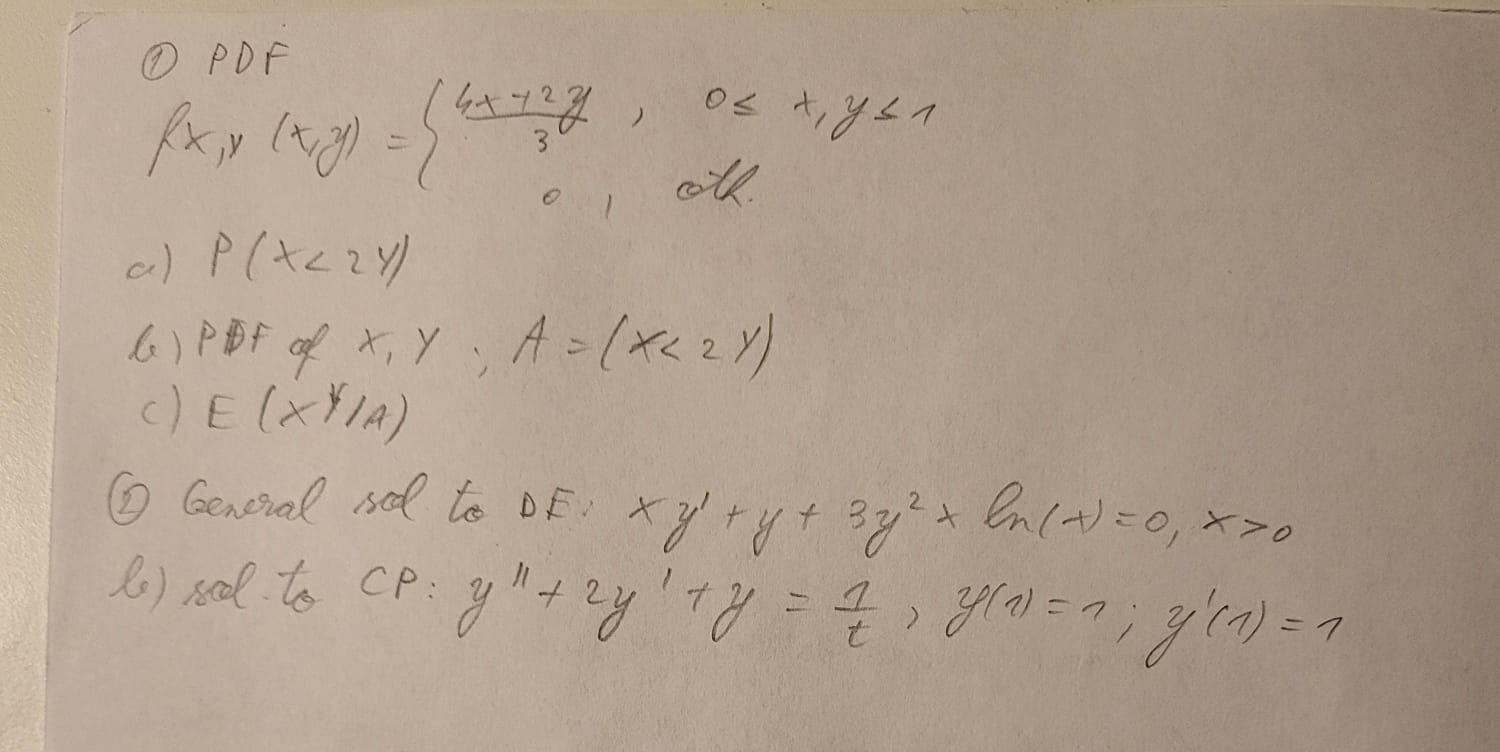 ① PDF
fX,Y (x,y) = { 4x+2y / 3 , 0 ≤ x, y ≤ 1
0 , oth.
a) P(X < 2Y)
b) PDF of X, Y ; A = (X < 2Y)
c) E (XY/A)
② General sol to DE: xy' + y + 3y² x ln(x) = 0, x > 0
b) sol. to CP: y'' + 2y' + y = 1/t , y(1) = 1 ; y'(1) = 1